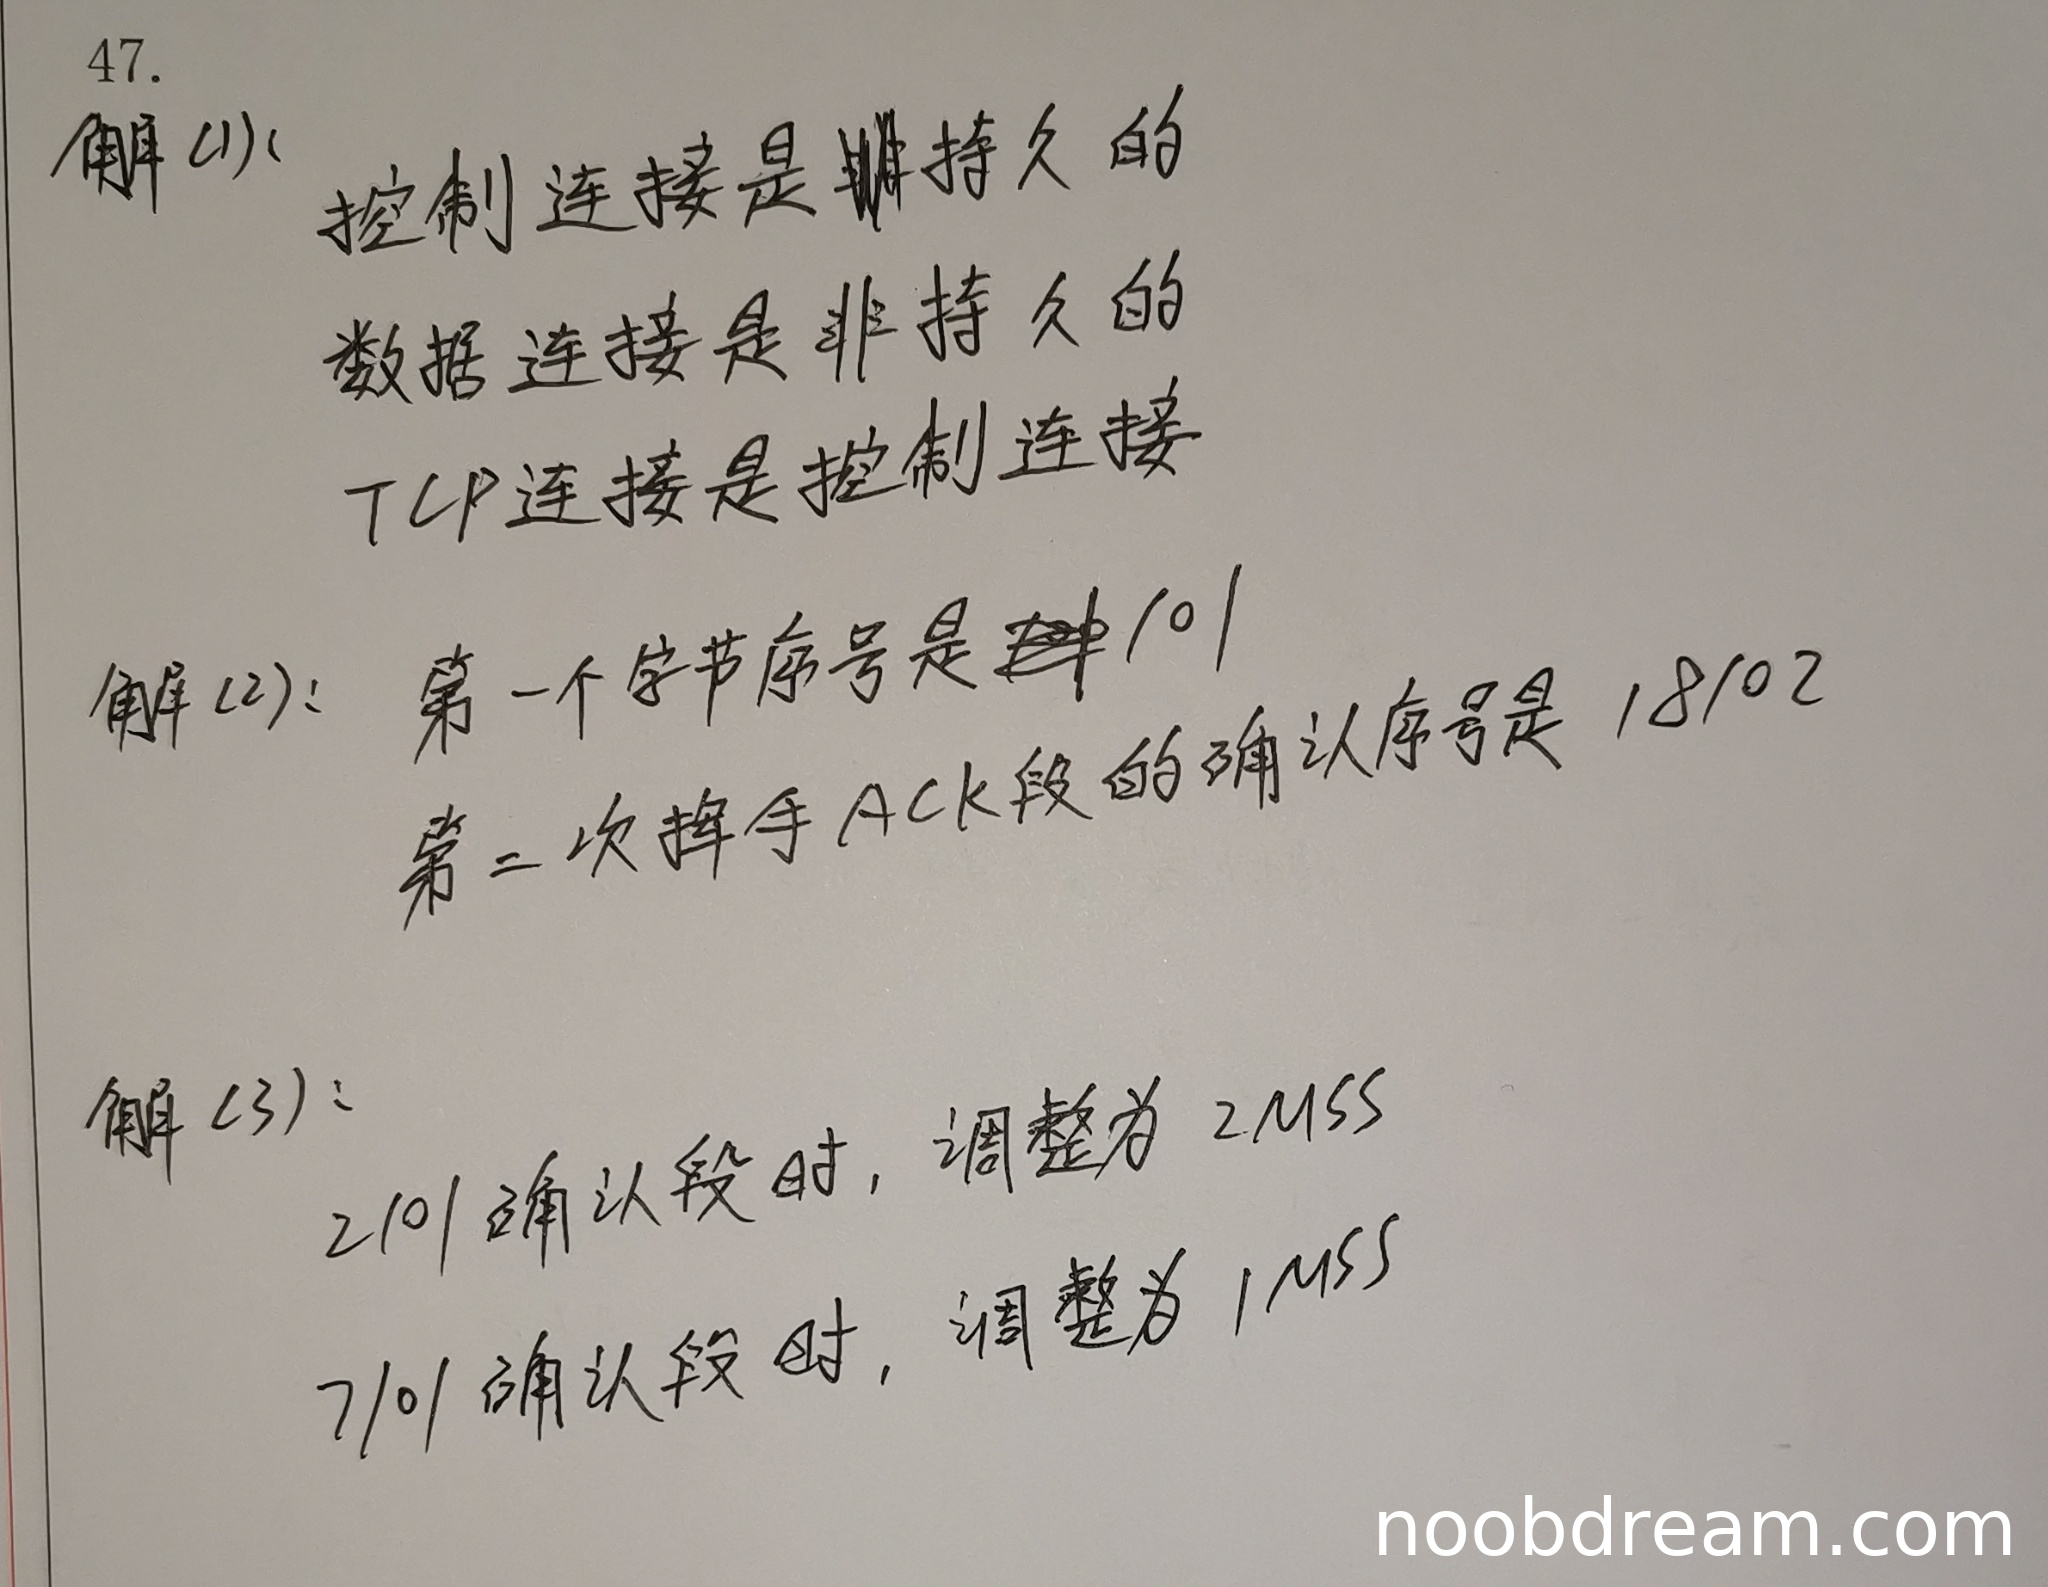 47.
解(1):
控制连接是持久的
数据连接是非持久的
TCP连接是控制连接
解(2): 第一个字节序号是101
第二次挥手ACK段的确认序号是18102
解(3):
2101确认段时, 调整为2MSS
7101确认段时, 调整为1MSS
noobdream.com